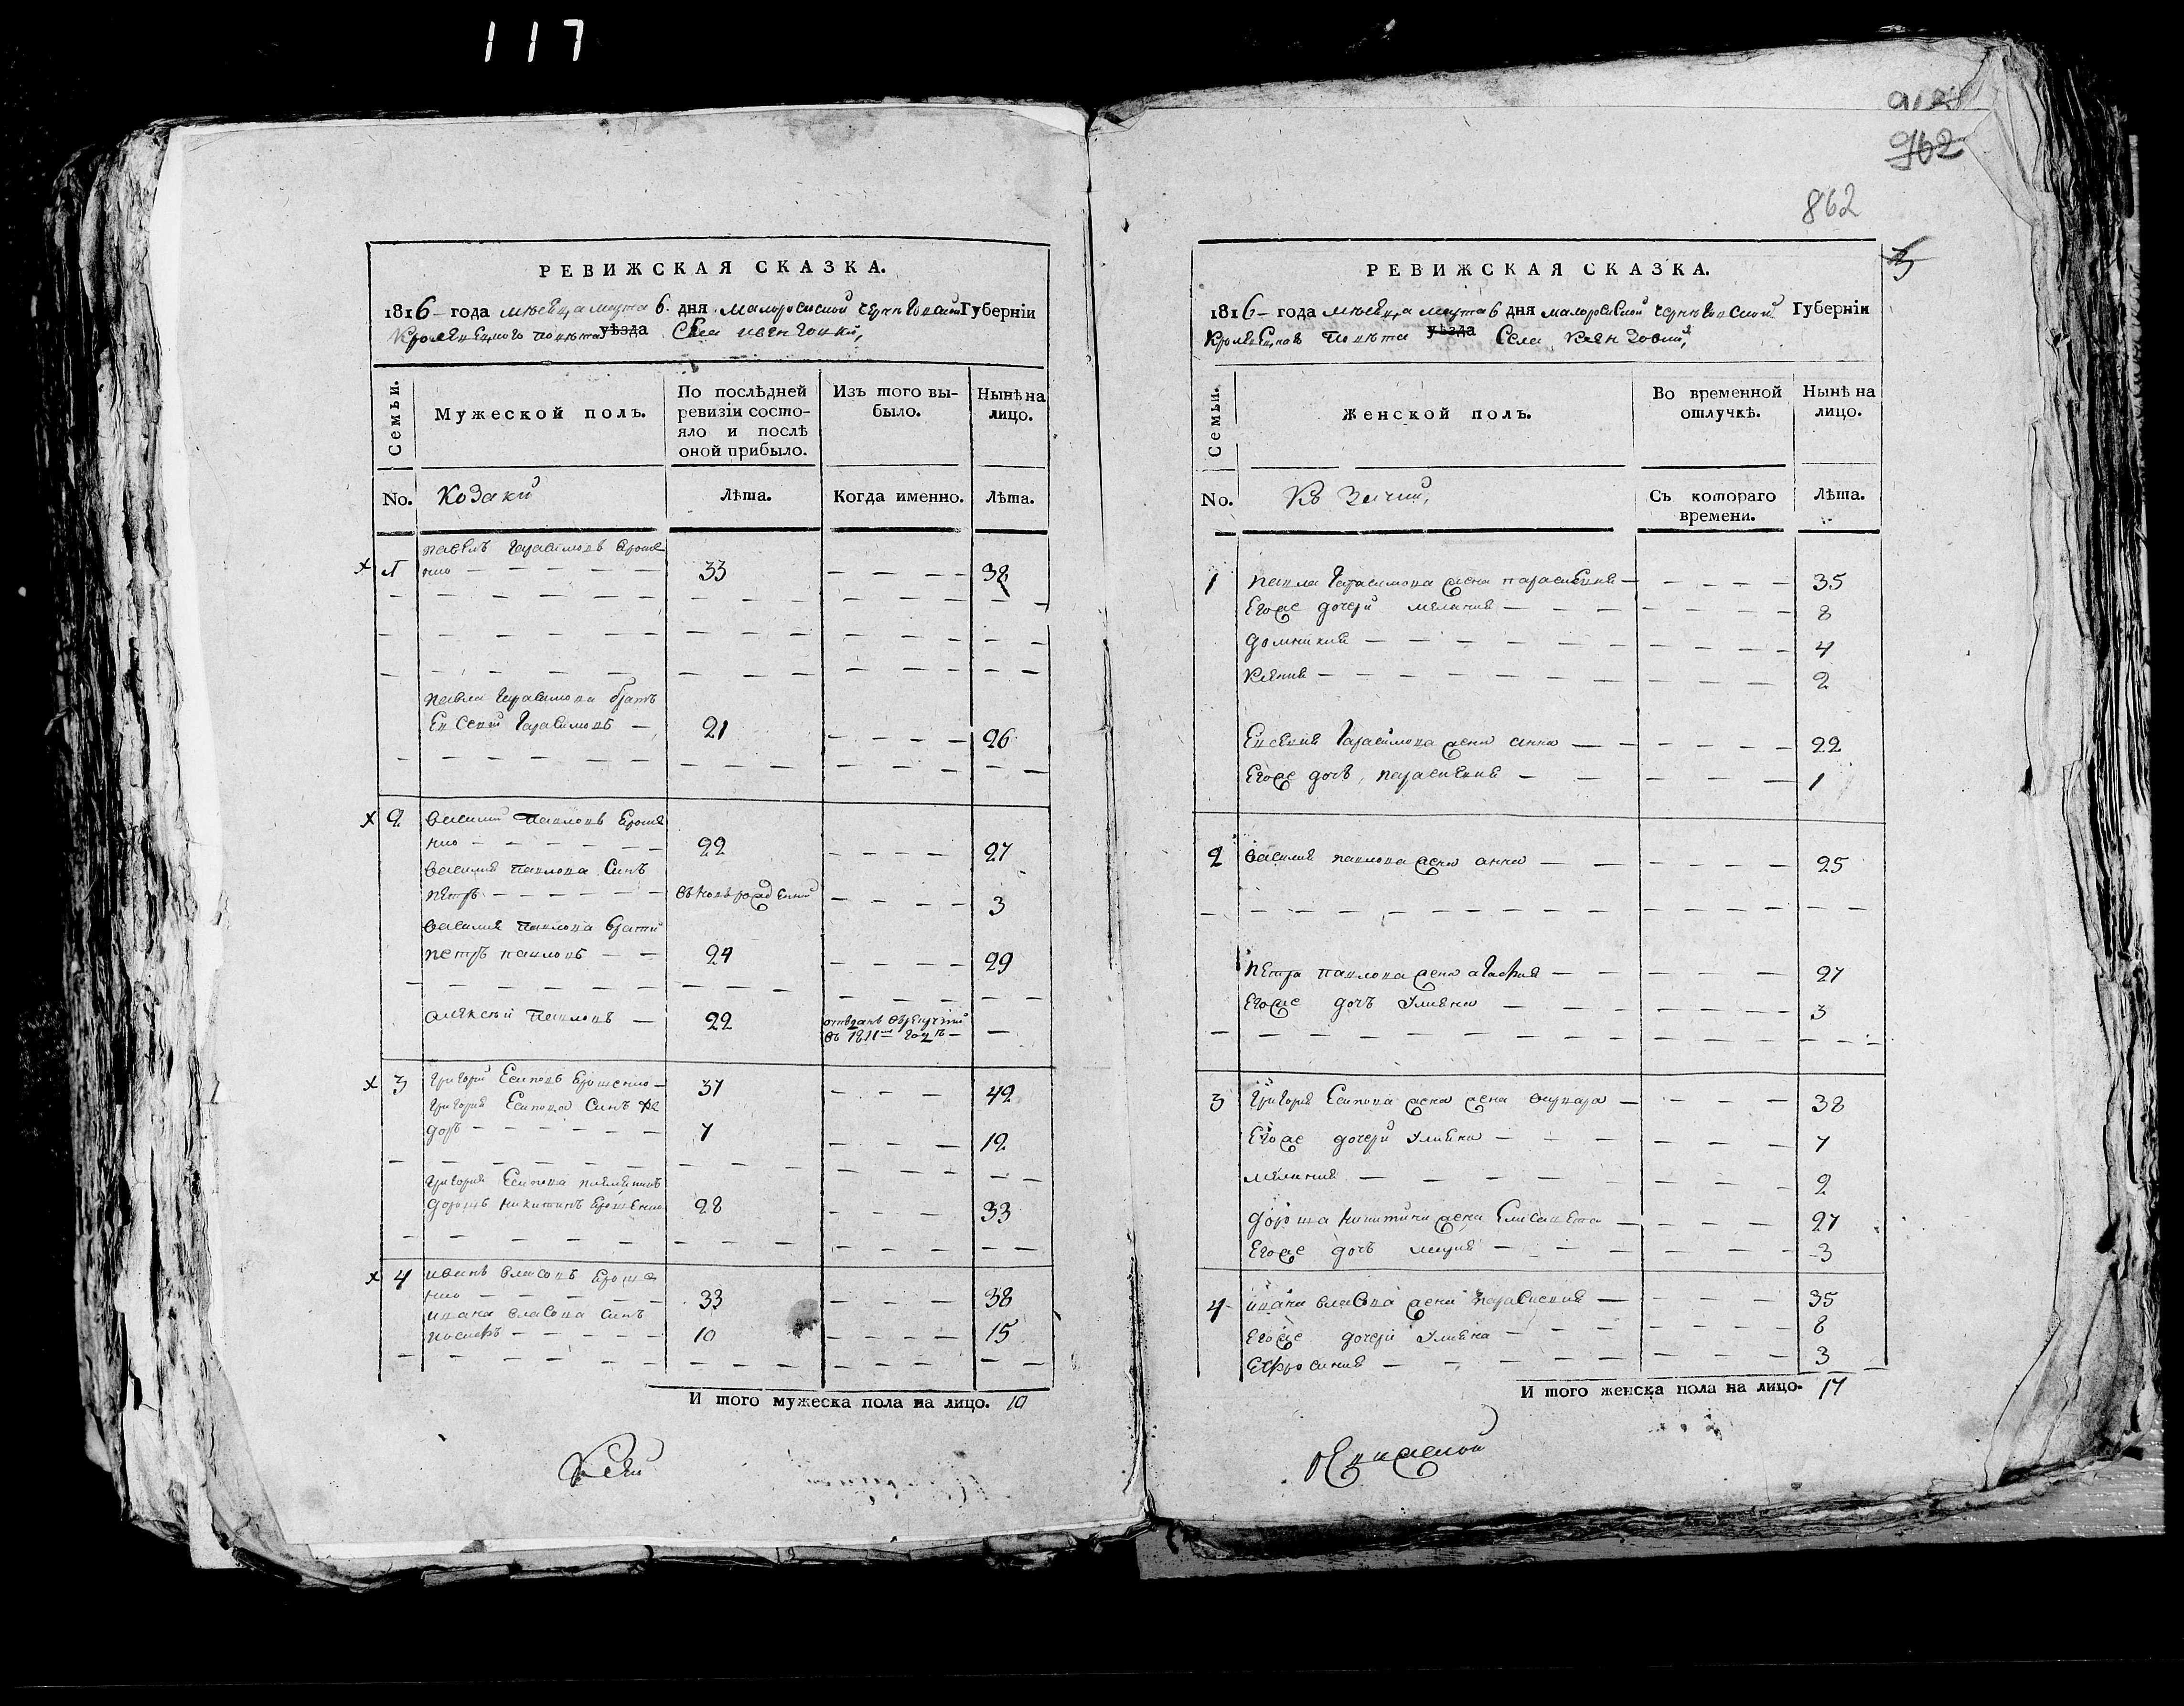 117
РЕВИЖСКАЯ СКАЗКА.
1816 года мѣсяца марта 6 дня Малоросиской Черниговской Губерніи
Кролевецкого повѣта уѣзда Села
Семьи.
Мужеской полъ.
По послѣдней ревизіи состояло и послѣ оной прибыло.
Изъ того выбыло.
Нынѣ на лицо.
No.
Козаки
Лѣта.
Когда именно.
Лѣта.
х 1 Павелъ Гарасимовъ Ероше
нко 33 38
Павла Гарасимова братъ
Евсевий Гарасимовъ 21 26
х 2 Василий Павловъ Ероше
нко 22 27
Василия Павлова синъ
Петръ въновърожденний 3
Василия Павлова брати
Петръ Павловъ 24 29
Алексѣй Павловъ 22 отъданъ въ
въ 1811 годѣ
х 3 Григорий Есиповъ Ерошенко 37 42
Григория Есипова синъ Фе
доръ 7 12
Григория Есипова племянникъ
Дорошъ Никитинъ Ерошенко 28 33
х 4 Иванъ Власовъ Ероше
нко 33 38
Ивана Власова синъ
Иосифъ 10 15
И того мужеска пола на лицо. 10
862
962
862
РЕВИЖСКАЯ СКАЗКА.
1816 года мѣсяца марта 6 дня Малоросиской Черниговской Губерніи
Кролевецкого повѣта уѣзда Села
Семьи.
Женской полъ.
Во временной отлучкѣ.
Нынѣ на лицо.
No.
Съ котораго времени.
Лѣта.
1 Павла Гарасимова жена Параскевия 35
Егоже дочери Мелания 8
Домникия 4
Ксения 2
Евсевия Гарасимова жена Анна 22
Егоже дочъ Параскевия 1
2 Василия Павлова жена Анна 25
Петра Павлова жена Агафия 27
Егоже дочъ Улияна 3
3 Григория Есипова жена жена 38
Егоже дочери Улияна 7
Мелания 2
Дороша Никитича жена Елисавета 27
Егоже дочъ Мария 3
4 Ивана Власова жена Параскевия 35
Егоже дочери Улияна 8
Ефросиния 3
И того женска пола на лицо. 17